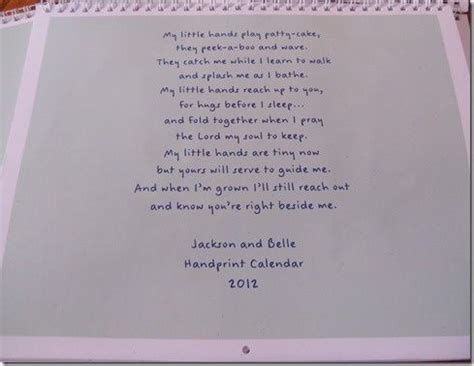 My little hands play patty-cake,
they peek-a-boo and wave.
They catch me while I learn to walk
and splash me as I bathe.
My little hands reach up to you,
for hugs before I sleep...
and fold together when I pray
the Lord my soul to keep.
My little hands are tiny now
but yours will serve to guide me.
And when I'm grown I'll still reach out
and know you're right beside me.
Jackson and Belle
Handprint Calendar
2012